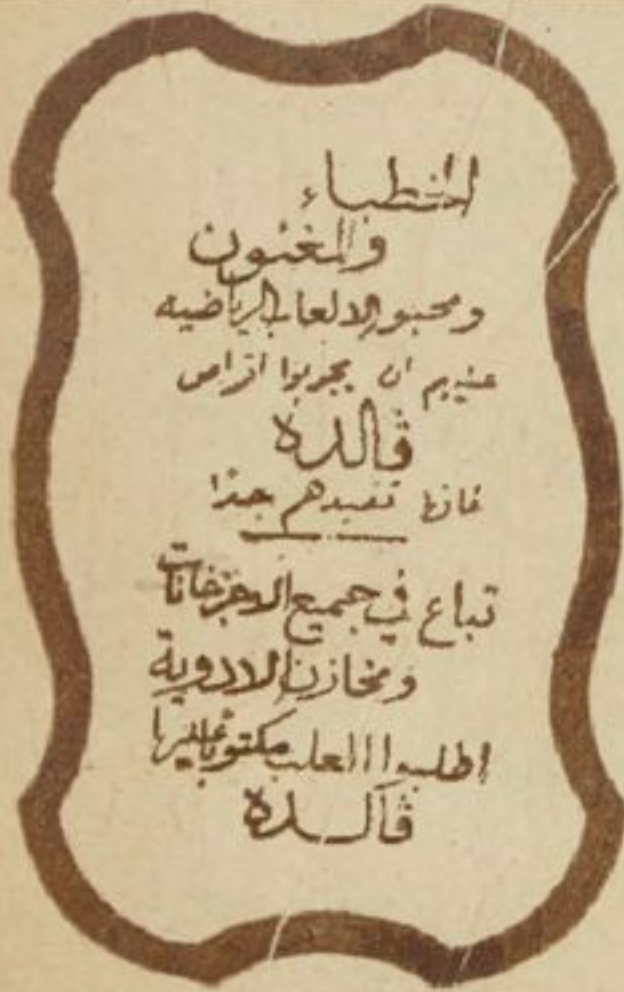 الخطباء
والمغنون
ومحبو الالعاب الرياضيه
عليهم ان يجربوا اقراص
ڤالده
فانها تفيدهم جدًا
تباع في جميع الاجزخانات
ومخازن الادوية
اطلبوا العلب مكتوبًا عليها
ڤالده